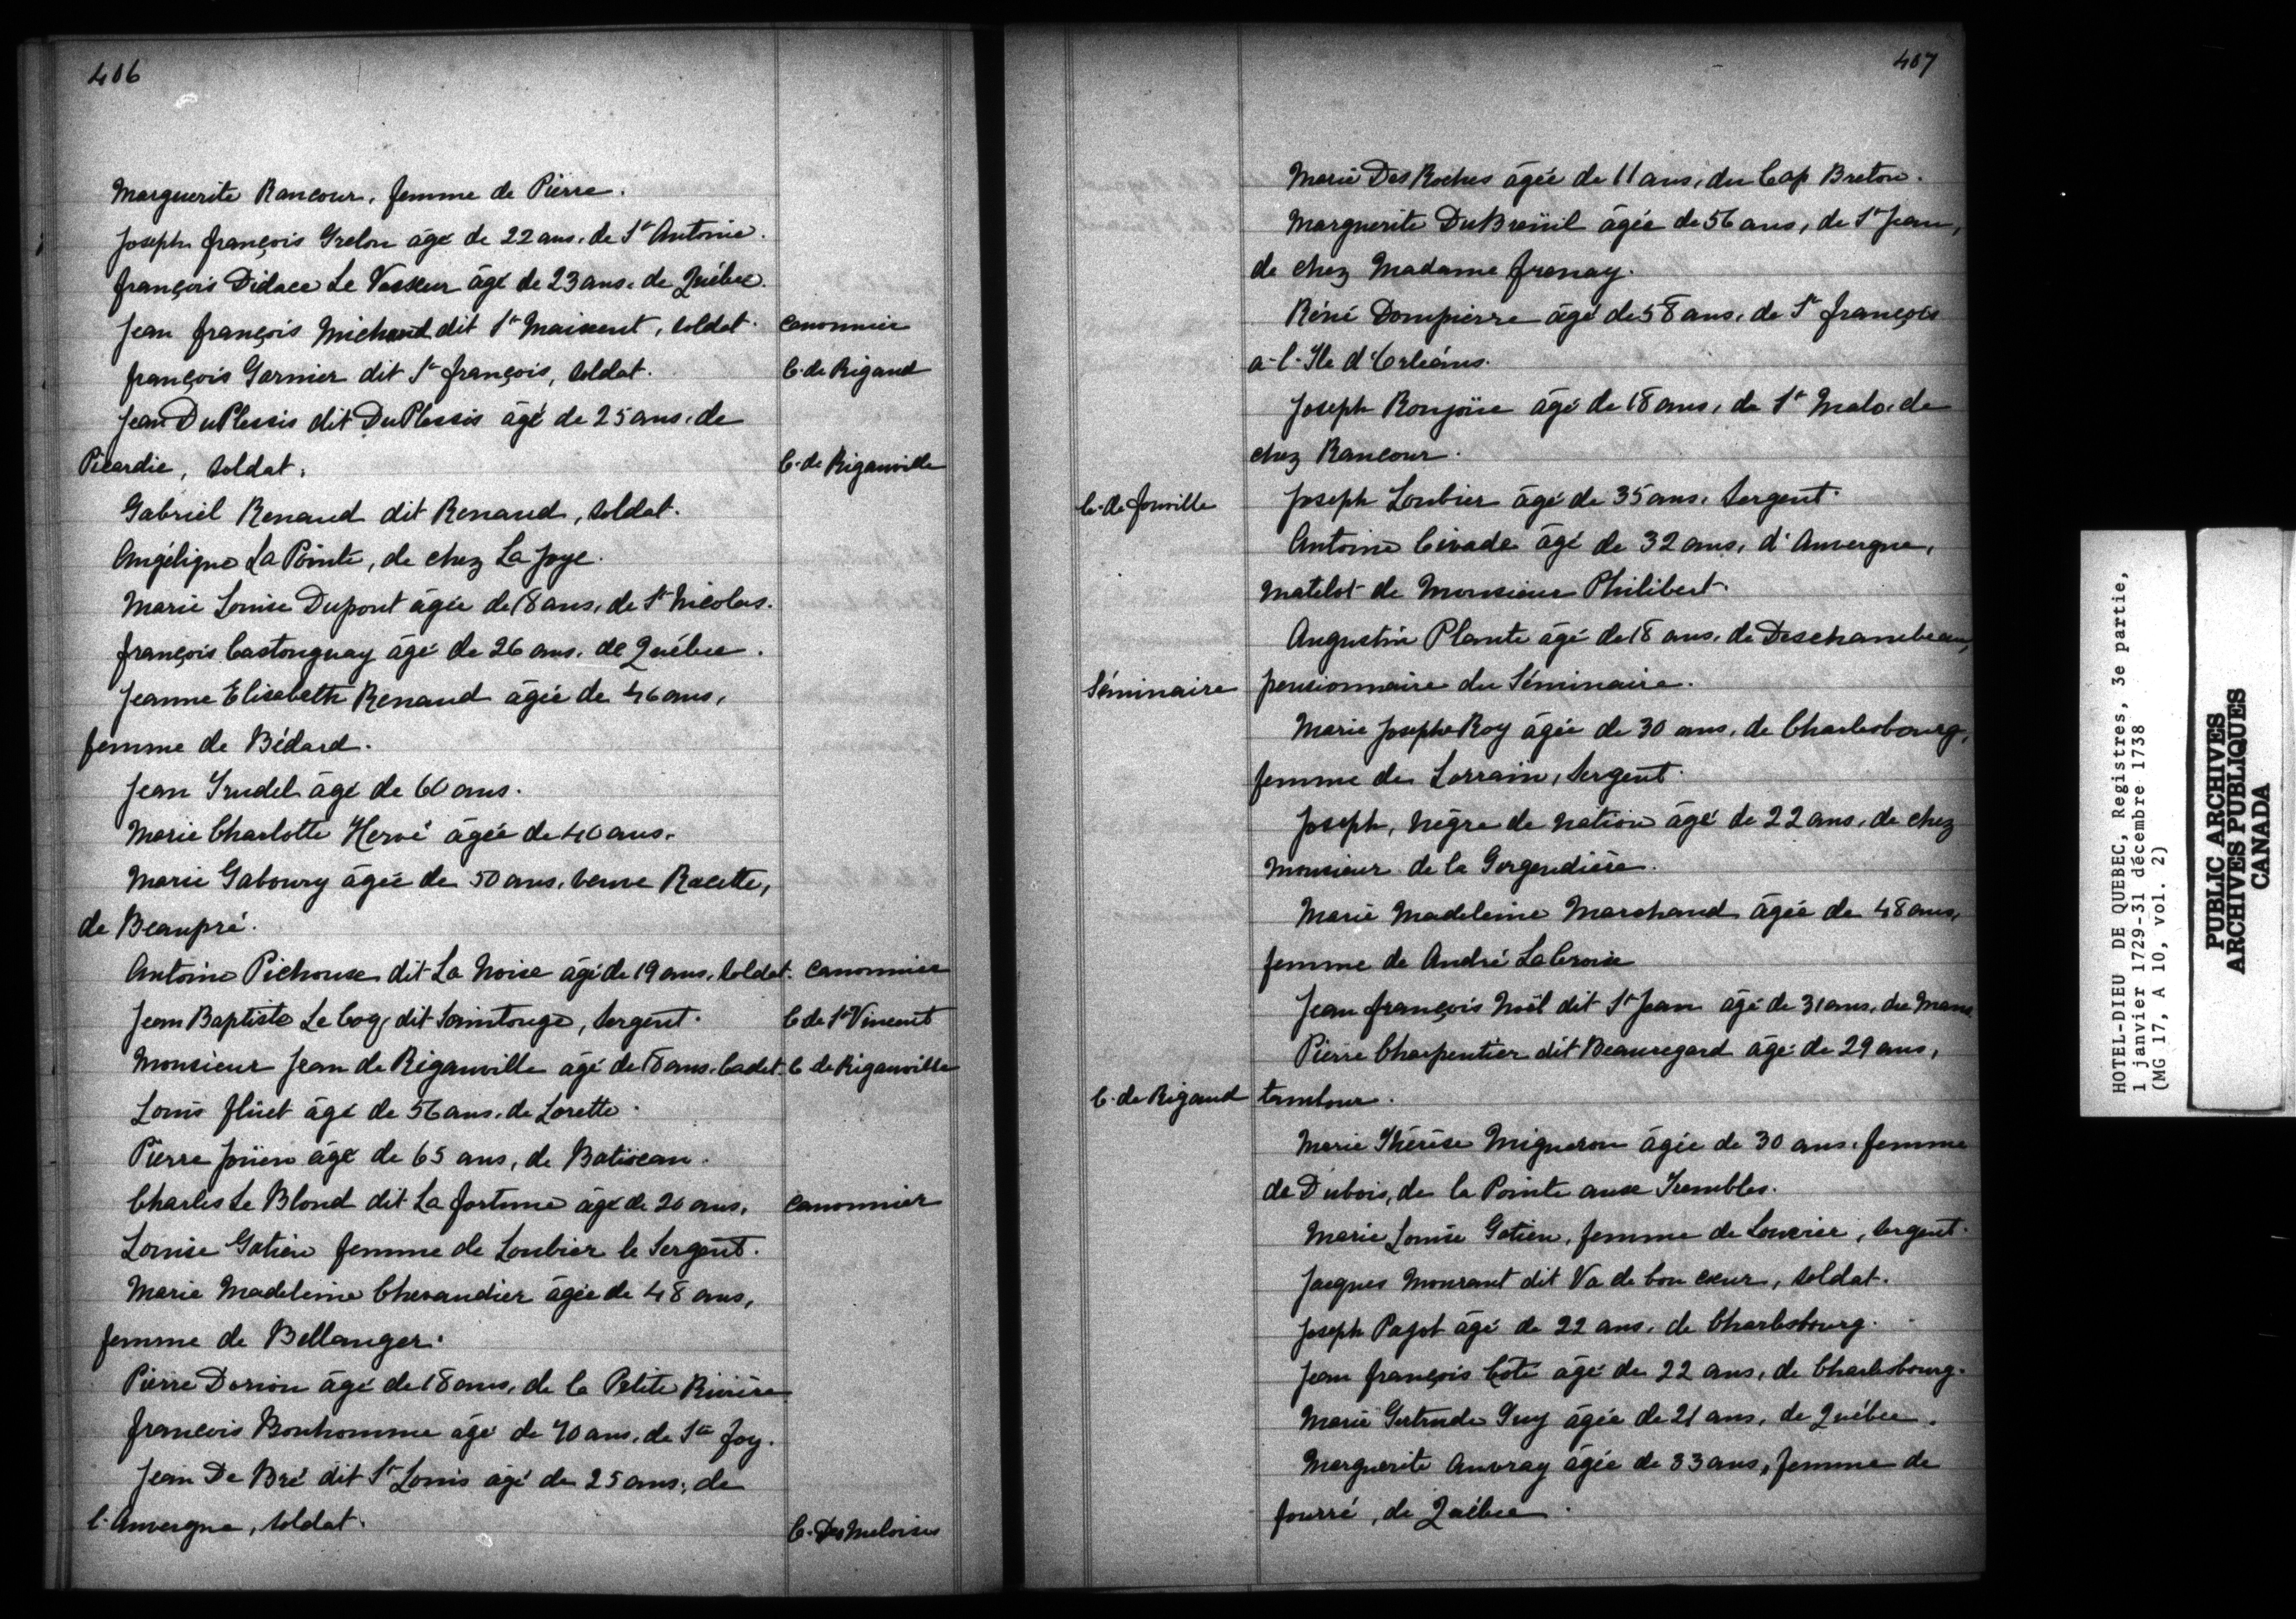 406
Marguerite Rancour, femme de Pierre.
Joseph françois Grelon âgé de 22 ans, de St Antoine.
françois Didace Le Vasseur âgé de 23 ans, de Québec.
Jean françois Michaud dit St Maixent, soldat. canonnier
françois Garnier dit St françois, soldat. C. de Rigaud
Jean DuPlessis dit DuPlessis âgé de 25 ans, de
Picardie, soldat. C. de Rigauville
Gabriel Renaud dit Renaud, soldat.
Angélique La Pointe, de chez La Joye.
Marie Louise Dupont âgée de 18 ans, de St Nicolas.
françois Castonguay âgé de 26 ans, de Québec.
Jeanne Elisabeth Renaud âgée de 46 ans,
femme de Bédard.
Jean Trudel âgé de 60 ans.
Marie Charlotte Hervé âgée de 40 ans.
Marie Gaboury âgée de 50 ans, veuve Racette,
de Beaupré.
Antoine Pichouse dit La Noise âgé de 19 ans, soldat. canonnier
Jean Baptiste Le Coq, dit Saintonge, Sergent. C de St Vincent
Monsieur Jean de Rigauville âgé de 18 ans, Cadet. C de Rigauville
Louis flüet âgé de 56 ans, de Lorette.
Pierre Joüen âgé de 65 ans, de Batiscan.
Charles Le Blond dit La fortune âgé de 20 ans, canonnier
Louise Gatien femme de Loubier le Sergent.
Marie Madeleine Chevaudier âgée de 48 ans,
femme de Bellanger.
Pierre Dorion âgé de 18 ans, de la Petite Rivière
françois Bonhomme âgé de 70 ans, de Ste foy.
Jean De Bré dit St Louis âgé de 25 ans, de
l'Auvergne, soldat. C. Des Meloises
407
Marie Des Roches âgée de 11 ans, du Cap Breton.
Marguerite DuBreüil âgée de 56 ans, de St Jean,
de chez Madame frenay.
Réné Dompierre âgé de 58 ans, de St françois
a-l-Ile d'Orléans.
Joseph Ronjoüe âgé de 18 ans, de St Malo, de
chez Rancour.
C. de Jonville Joseph Loubier âgé de 35 ans, Sergent.
Antoine Civade âgé de 32 ans, d'Auvergne,
matelot de Monsieur Philibert.
Augustin Plante âgé de 18 ans, de Deschambeau,
Séminaire pensionnaire du Séminaire.
Marie Josephe Roy âgée de 30 ans, de Charlesbourg,
femme de Lorrain, Sergent.
Joseph, nègre de nation âgé de 22 ans, de chez
Monsieur de la Gorgendière.
Marie Madeleine Marchand âgée de 48 ans,
femme de André LaCroix
Jean françois Noël dit St Jean âgé de 31 ans, du Mans
Pierre Charpentier dit Beauregard âgé de 29 ans,
C. de Rigaud tambour.
Marie Thérèse Migneron âgée de 30 ans, femme
de Dubois, de la Pointe aux Trembles.
Marie Louise Gatien, femme de Louvier, sergent.
Jacques Mourant dit Va de bon cœur, soldat.
Joseph Pajot âgé de 22 ans, de Charlesbourg.
Jean françois Côté âgé de 22 ans, de Charlesbourg.
Marie Gertrude Guy âgée de 21 ans, de Québec.
Marguerite Auvray âgée de 33 ans, femme de
fourré, de Québec.
HOTEL-DIEU DE QUEBEC, Registres, 3e partie,
1 janvier 1729-31 décembre 1738
(MG 17, A 10, vol. 2)
PUBLIC ARCHIVES
ARCHIVES PUBLIQUES
CANADA